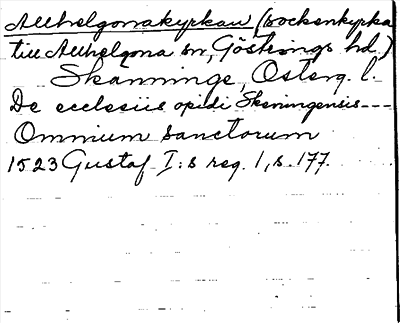 Allhelgonakyrkan (sockenkyrka
till Allhelgona sn, Göstrings hd.)
Skänninge, Österg. l.
De ecclesiis opidi Skeningensis ---
Omnium sanctorum
1523 Gustaf I:s reg. 1, s. 177.